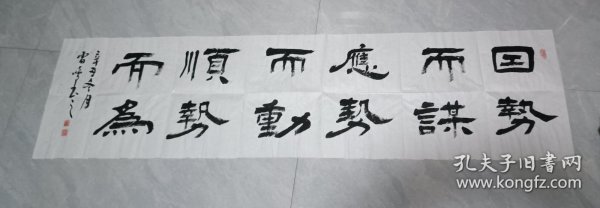 囙勢
而謀
應勢
而動
順勢
而為
辛丑冬月
孔夫子旧书网
www.kongfz.com